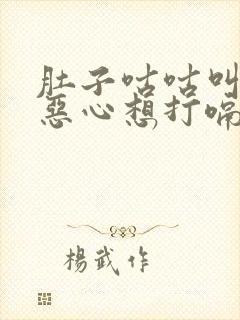 肚子咕咕叫
惡心想打嗝
楊武作